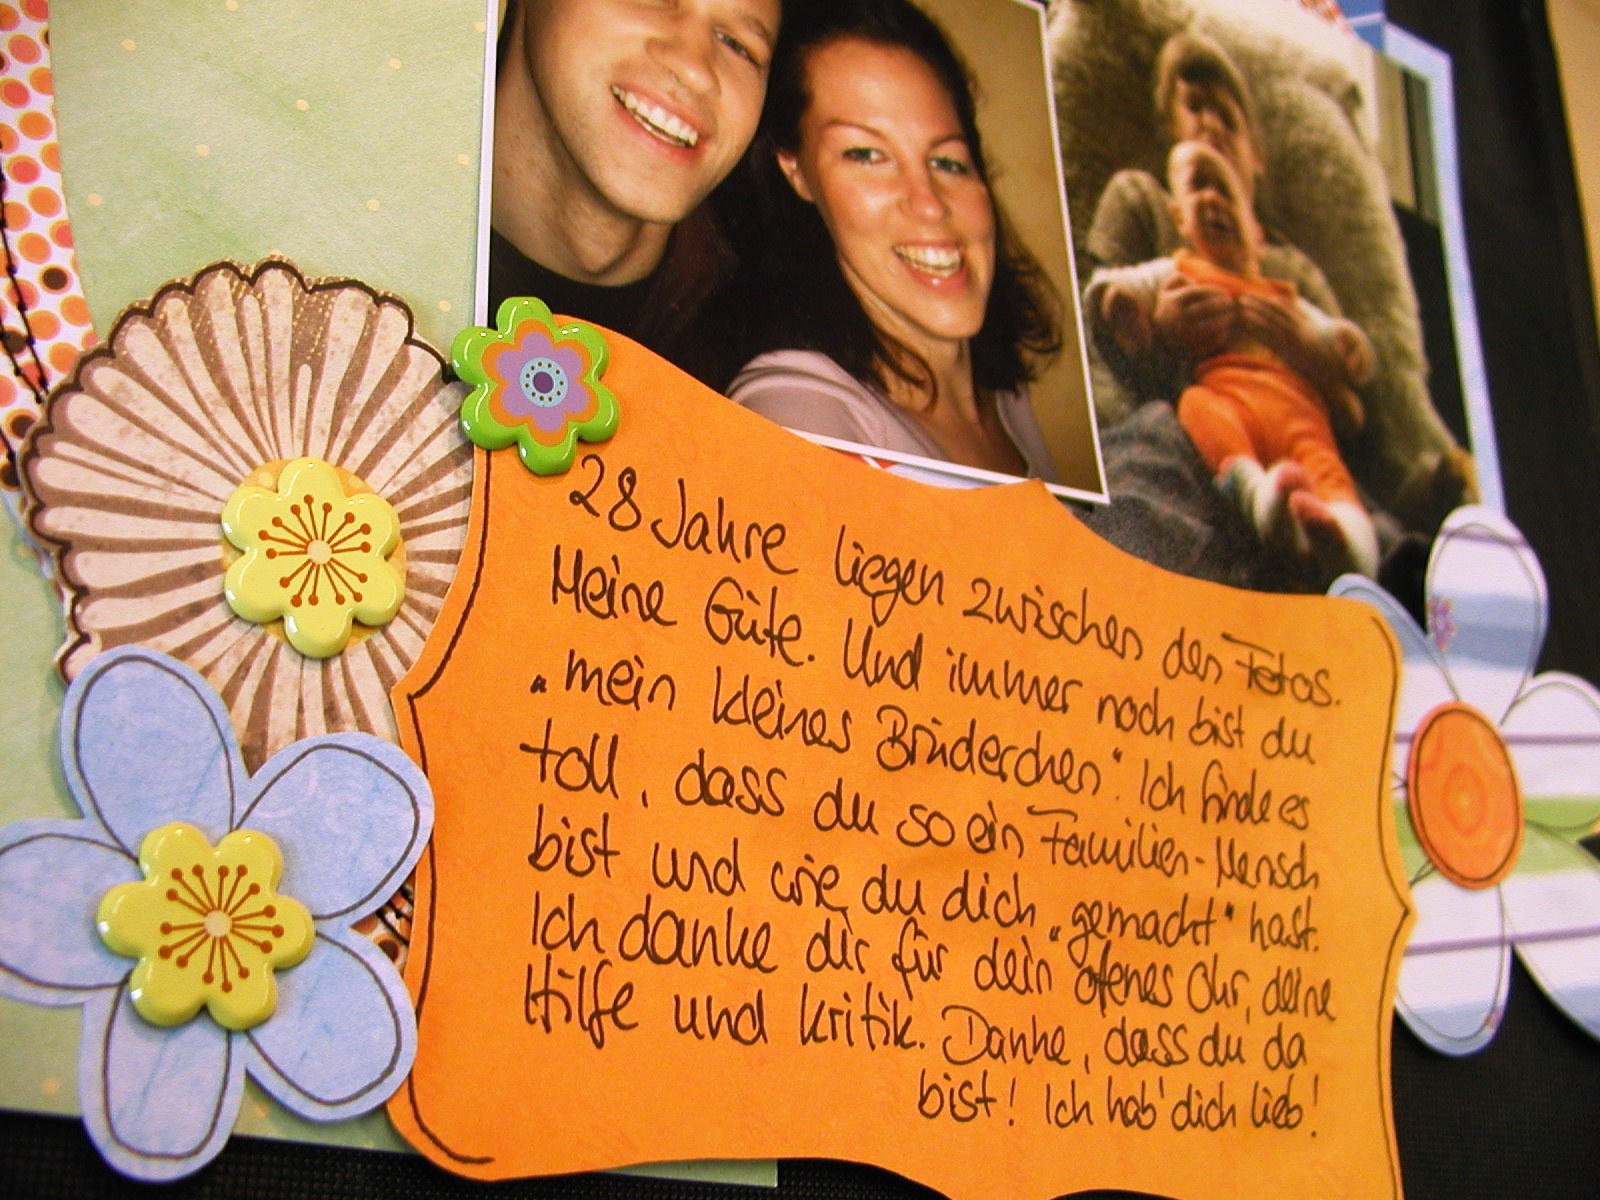 28 Jahre liegen zwischen den Fotos.
Meine Güte. Und immer noch bist du
„mein kleines Brüderchen“. Ich finde es
toll, dass du so ein Familien-Mensch
bist und wie du dich „gemacht“ hast.
Ich danke dir für dein "offenes Ohr, deine
Hilfe und Kritik. Danke, dass du da
bist! Ich hab' dich lieb!